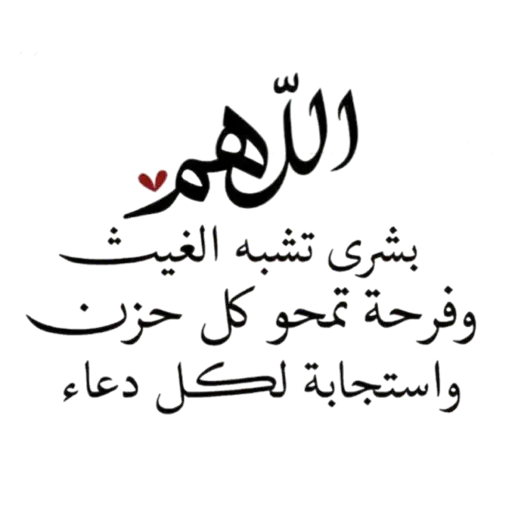 اللّهم
بشرى تشبه الغيث
وفرحة تمحو كل حزن
واستجابة لكل دعاء